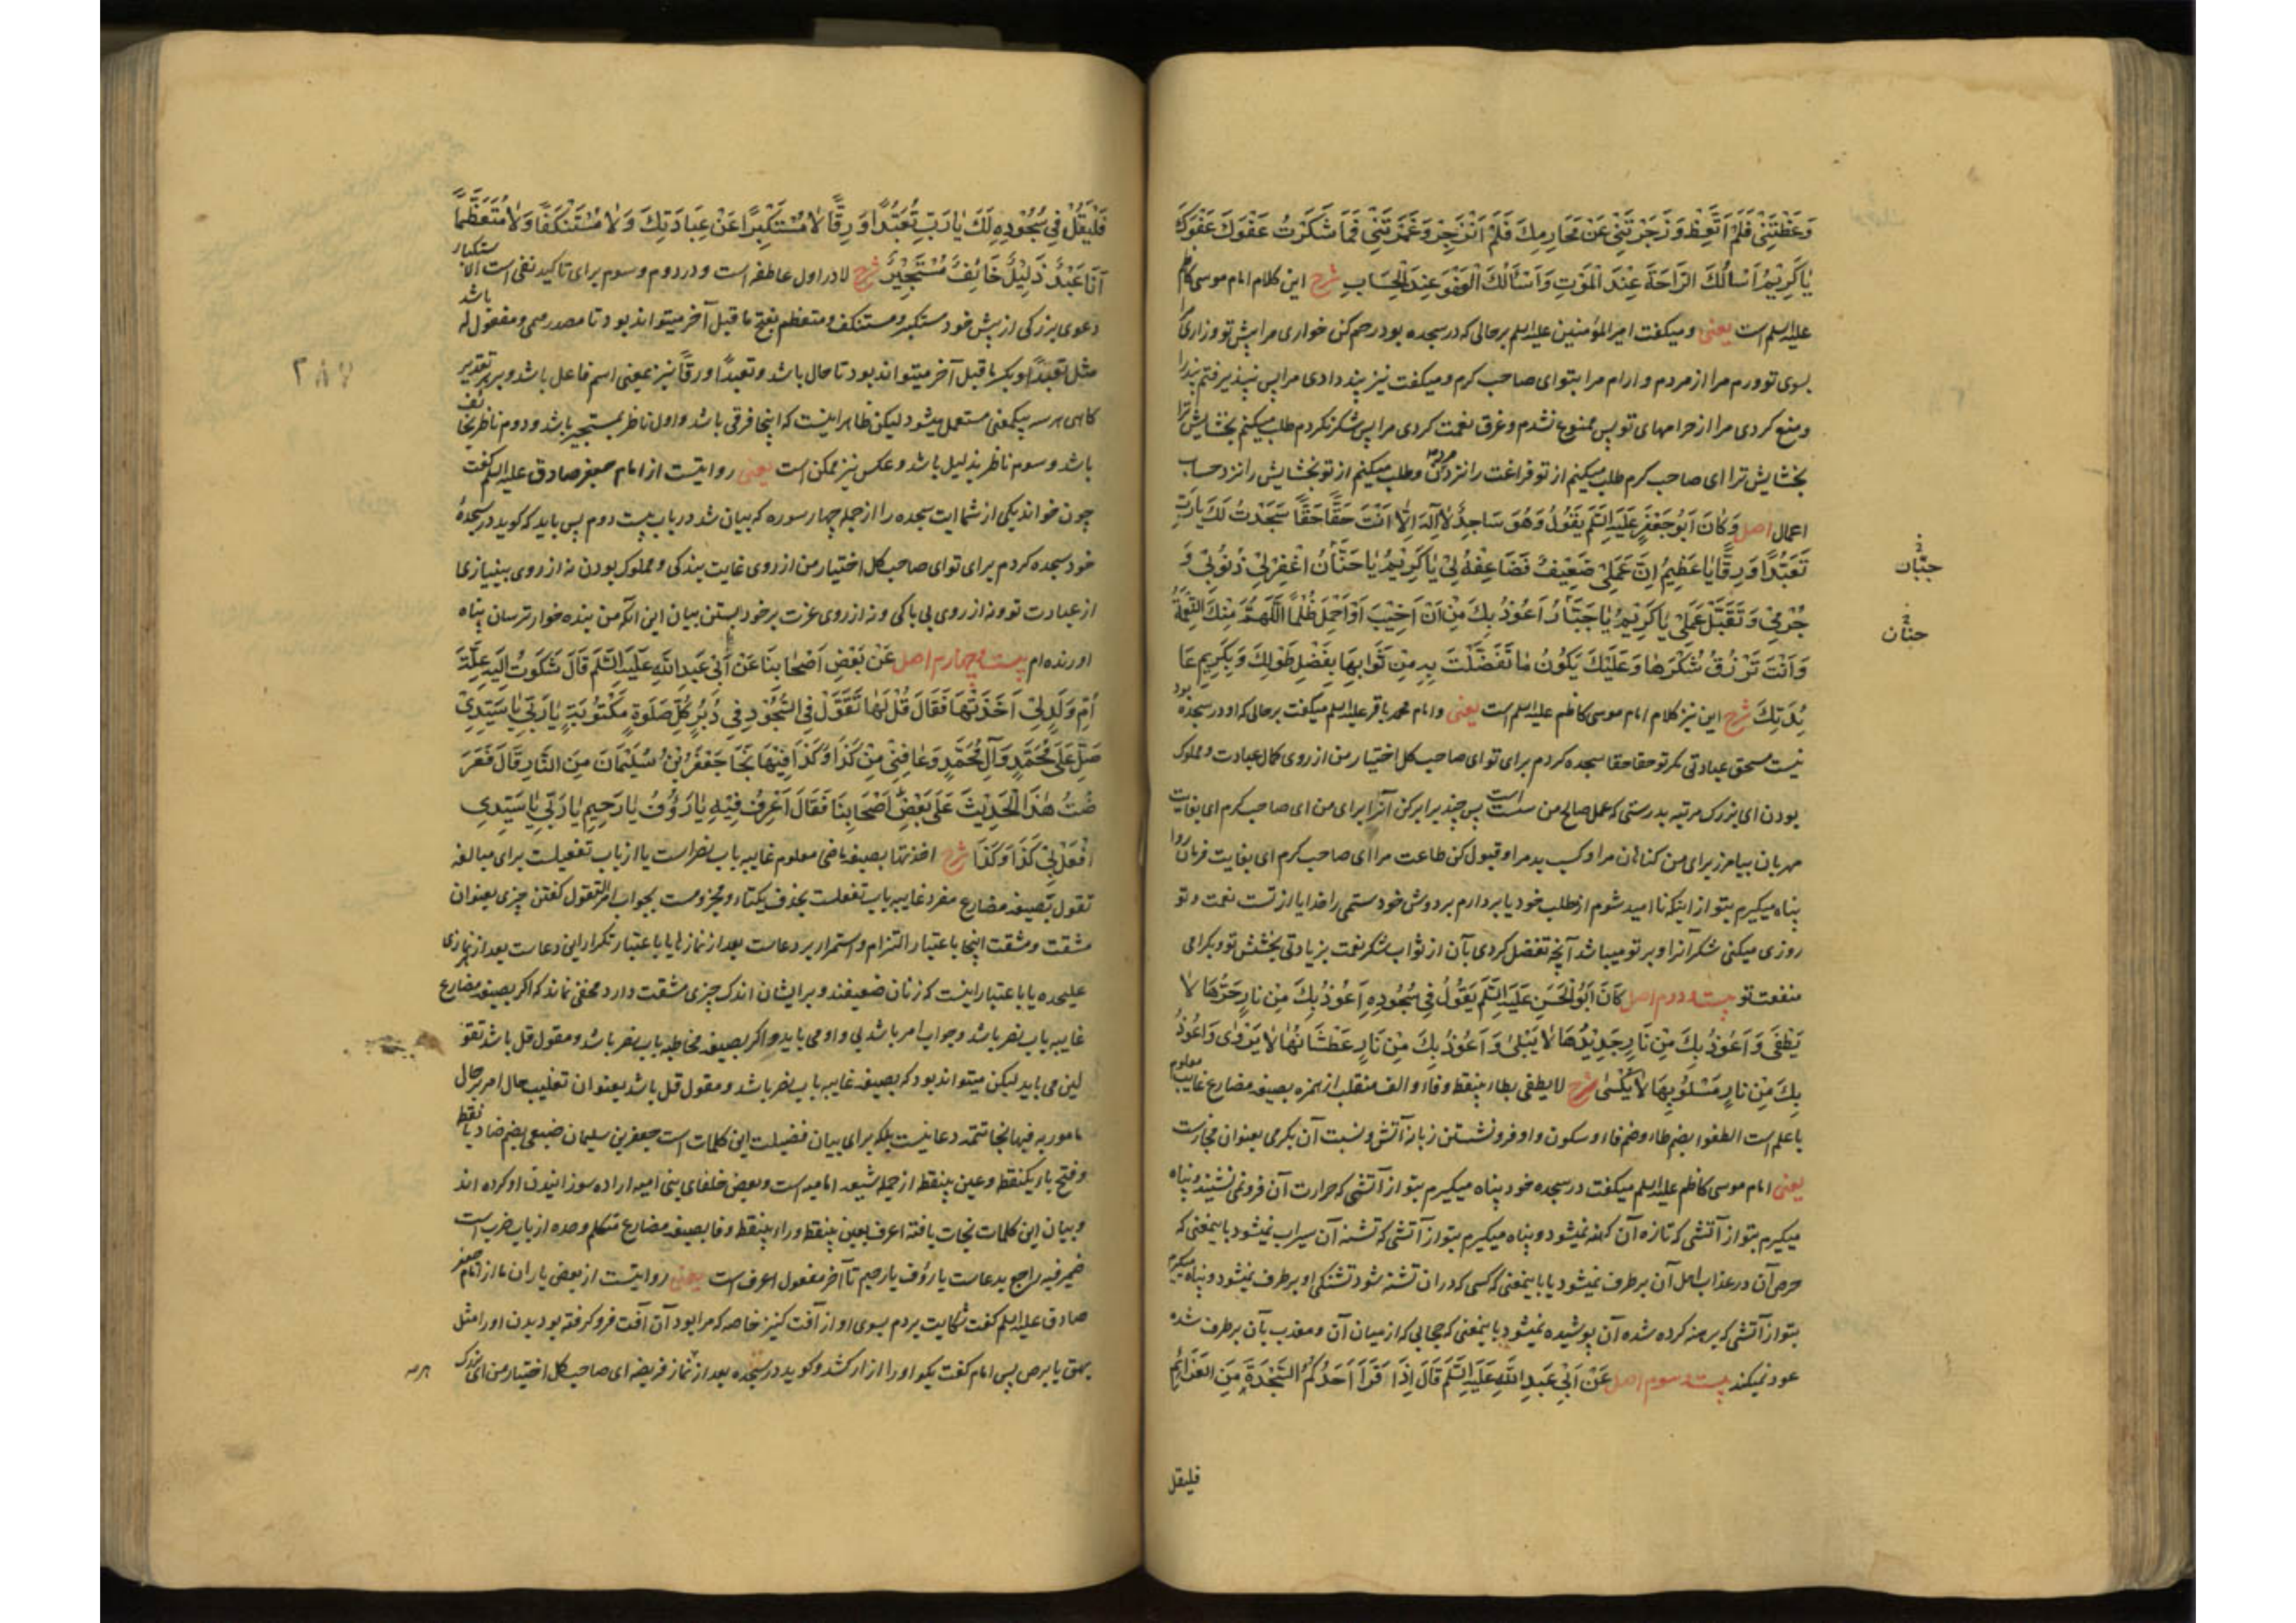 وَعَظْتَنِي فَلَمْ أَتَّعِظْ وَزَجَرْتَنِي عَنْ مَحَارِمِكَ فَلَمْ أَنْزَجِرْ وَغَمَرْتَنِي فَمَا شَكَرْتُ عَفْوَكَ عَفْوَكَ
يَا كَرِيمُ أَسْأَلُكَ الرَّاحَةَ عِنْدَ الْمَوْتِ وَأَسْأَلُكَ الْعَفْوَ عِنْدَ الْحِسَابِ شرح این کلام امام موسی کاظم
علیه السلم است یعنی و میکفت امیر المؤمنین علیه السلم بر حالی که در سجده بود رحم کن خواری مرا پیش تو و زاری مرا
بسوی تو و رم مرا از مردم و آرام مرا بتو ای صاحب کرم و میکفت نیز پند دادی مرا پس نپذیرفتم پند را
و منع کردی مرا از حرامهای تو پس ممنوع نشدم و غرق نعمت کردی مرا پس شکر نکردم طلب میکنم بخشایش ترا
بخشایش ترا ای صاحب کرم طلب میکنم از تو فراغت را نزد مردن و طلب میکنم از تو بخشایش را نزد حساب
اعمال اصل وَكَانَ أَبُو جَعْفَرٍ عَلَيْهِ السَّلَم يَقُولُ وَهُوَ سَاجِدٌ لَا إِلَهَ إِلَّا أَنْتَ حَقًّا حَقًّا سَجَدْتُ لَكَ يَا رَبِّ
تَعَبُّدًا وَرِقًّا يَا عَظِيمُ إِنَّ عَمَلِي ضَعِيفٌ فَضَاعِفْهُ لِي يَا كَرِيمُ يَا حَنَّانُ اغْفِرْ لِي ذُنُوبِي وَ
جُرْمِي وَتَقَبَّلْ عَمَلِي يَا كَرِيمُ يَا جَبَّارُ أَعُوذُ بِكَ مِنْ أَنْ أَخِيبَ أَوْ أَحْمِلَ ظُلْمًا اللَّهُمَّ مِنْكَ النِّعْمَةُ
وَأَنْتَ تَرْزُقُ شُكْرَهَا وَعَلَيْكَ يَكُونُ مَا تَفَضَّلْتَ بِهِ مِنْ ثَوَابِهَا بِفَضْلِ طَوْلِكَ وَبِكَرِيمِ عَا
ئِدَتِكَ شرح این نیز کلام امام موسی کاظم علیه السلم است یعنی و امام محمد باقر علیه السلم میکفت بر حالی که او در سجده بود
نیست مستحق عبادتی مکر تو حقا حقا سجده کردم برای تو ای صاحب کل اختیار من از روی کمال عبادت و مملوک
بودن ای بزرک مرتبه بدرستی که عمل صالح من سست است پس چند برابر کن آنرا برای من ای صاحب کرم ای بغایت
مهربان بیامرز برای من کناهان مرا و کسب بد مرا و قبول کن طاعت مرا ای صاحب کرم ای بغایت فرمان روا
پناه میکیرم بتو از اینکه ناامید شوم از مطلب خود یا بردارم بر دوش خود ستمی را خدایا از تست نعمت و تو
روزی میکنی شکر آنرا و بر تو میباشد آنچه تفضل کردی بآن از ثواب شکر نعمت بزیادتی بخشش تو و بکرامی
منفعت تو بیست و دوم اصل كَانَ أَبُو الْحَسَنِ عَلَيْهِ السَّلَم يَقُولُ فِي سُجُودِهِ أَعُوذُ بِكَ مِنْ نَارٍ حَرُّهَا لَا
يَطْفَى وَأَعُوذُ بِكَ مِنْ نَارٍ جَدِيدُهَا لَا يَبْلَى وَأَعُوذُ بِكَ مِنْ نَارٍ عَطْشَانُهَا لَا يَرْوَى وَأَعُوذُ
بِكَ مِنْ نَارٍ مَسْلُوبُهَا لَا يُكْسَى شرح لا یطفی بطاء بینقط و فاء و الف منقلب از همزه بصیغه مضارع غایب معلوم
باعلم است الطفوا بضم طاء و ضم فاء و سکون واو فرو نشستن زبانه آتش و نسبت آن بکرمی بعنوان مجازست
یعنی امام موسی کاظم علیه السلم میکفت در سجده خود پناه میکیرم بتو از آتشی که حرارت آن فرو نمی نشیند و پناه
میکیرم بتو از آتشی که تازه آن کهنه نمیشود و پناه میکیرم بتو از آتشی که تشنه آن سیراب نمیشود باینمعنی که
حرص آن در عذاب اهل آن برطرف نمیشود یا باینمعنی که کسی که در آن تشنه شود تشنکی او برطرف نمیشود و پناه میکیرم
بتو از آتشی که برهنه کرده شده آن پوشیده نمیشود باینمعنی که حجابی که از میان آن و معذب بآن برطرف شده
عود نمیکند بیست و سوم اصل عَنْ أَبِي عَبْدِ اللَّهِ عَلَيْهِ السَّلَم قَالَ إِذَا قَرَأَ أَحَدُكُمُ السَّجْدَةَ مِنَ الْعَزَائِمِ
فلیقل
جبّان
حنّان
فَلْيَقُلْ فِي سُجُودِهِ لَكَ يَا رَبِّ تَعَبُّدًا وَرِقًّا لَا مُسْتَكْبِرًا عَنْ عِبَادَتِكَ وَلَا مُسْتَنْكِفًا وَلَا مُتَعَظِّمًا
أَنَا عَبْدٌ ذَلِيلٌ خَائِفٌ مُسْتَجِيرٌ شرح لا در اول عاطفه است و در دوم و سوم برای تاکید نفی است الاستکبار
دعوی بزرکی از پیش خود مستکبر و مستنکف و متعظم بفتح ماقبل آخر میتواند بود تا مصدر میمی و مفعول له باشد
مثل تعبدا و بکسر ماقبل آخر میتواند بود تا حال باشد و تعبدا و رقا نیز بمعنی اسم فاعل باشد و بر هر تقدیر
کاهی هر سه بیکمعنی مستعمل میشود لیکن ظاهر اینست که اینجا فرقی باشد و اول ناظر بمستجیر باشد و دوم ناظر بخائف
باشد و سوم ناظر بذلیل باشد و عکس نیز ممکن است یعنی روایتست از امام جعفر صادق علیه السلم کفت
چون خواند یکی از شما آیت سجده را از جمله چهار سوره که بیان شد در باب بیست دوم پس باید که کوید در سجدهٔ
خود سجده کردم برای تو ای صاحب کل اختیار من از روی غایت بندکی و مملوک بودن نه از روی بینیازی
از عبادت تو و نه از روی بی باکی و نه از روی عزت بر خود بستن بیان این آنکه من بنده خوار ترسان پناه
آورنده ام بیست و چهارم اصل عَنْ بَعْضِ أَصْحَابِنَا عَنْ أَبِي عَبْدِ اللَّهِ عَلَيْهِ السَّلَم قَالَ شَكَوْتُ إِلَيْهِ عِلَّةَ
أُمِّ وَلَدٍ لِي أَخَذَتْهَا فَقَالَ قُلْ لَهَا تَقَوَّلْ فِي السُّجُودِ فِي دُبُرِ كُلِّ صَلَوةٍ مَكْتُوبَةٍ يَا رَبِّي يَا سَيِّدِي
صَلِّ عَلَى مُحَمَّدٍ وَآلِ مُحَمَّدٍ وَعَافِنِي مِنْ كَذَا وَكَذَا فِيْهَا نَجَا جَعْفَرُ بْنُ سُلَيْمَانَ مِنَ النَّارِ قَالَ فَعَرَ
ضْتُ هَذَا الْحَدِيثَ عَلَى بَعْضِ أَصْحَابِنَا فَقَالَ أَعْرِفُ فِيهِ يَا رَؤُفُ يَا رَحِيمُ يَا رَبِّي يَا سَيِّدِي
افْعَلْ بِي كَذَا وَكَذَا شرح اخذتها بصیغه ماضی معلوم غایبه باب نصر است یا از باب تفعیلست برای مبالغه
تقول بصیغه مضارع مفرد غایبه باب تفعلست بحذف یکتاء و مجزومست بجواب امر التقول کفتن چیزی بعنوان
مشقت و مشقت اینجا باعتبار التزام و استمرار بر دعاست بعد از نمازها یا باعتبار تکرار این دعاست بعد از هر نمازی
علیحده یا باعتبار اینست که زنان ضعیفند و بر ایشان اندک چیزی مشقت دارد مخفی نماند که اکر بصیغه مضارع
غایبه باب نصر باشد و جواب امر باشد بی واو می باید و اکر بصیغه مخاطبه باب نصر باشد و مقول قل باشد تقو
لین می باید لیکن میتواند بود که بصیغه غایبه باب نصر باشد و مقول قل باشد بعنوان تغلیب حال امر بر حال
مامور به فیها نجا تتمه دعا نیست بلکه برای بیان فضیلت این کلمات است جعفر بن سلیمان ضبعی بضم ضاد بانقط
و فتح باء یکنقط و عین بینقط از جمله شیعه امامیه است و بعض خلفای بنی امیه اراده سوزانیدن او کرده اند
و بیان این کلمات نجات یافته اعرف بعین بینقط و راء بینقط و فا بصیغه مضارع متکلم وحده از باب ضرب است
ضمیر فیه راجع بدعاست یا رؤف یا رحیم تا آخر مفعول اعرف است یعنی روایتست از بعضی یاران ما از امام جعفر
صادق علیه السلم کفت شکایت بردم بسوی او از آفت کنیز خاصه که مرا بود آن آفت فرو کرفته بود بدن او را مثل
بهق یا برص پس امام کفت بکو او را آزار کشد و کوید در سجده بعد از نماز فریضه ای صاحب کل اختیار من ای بزرک
۲۸۷